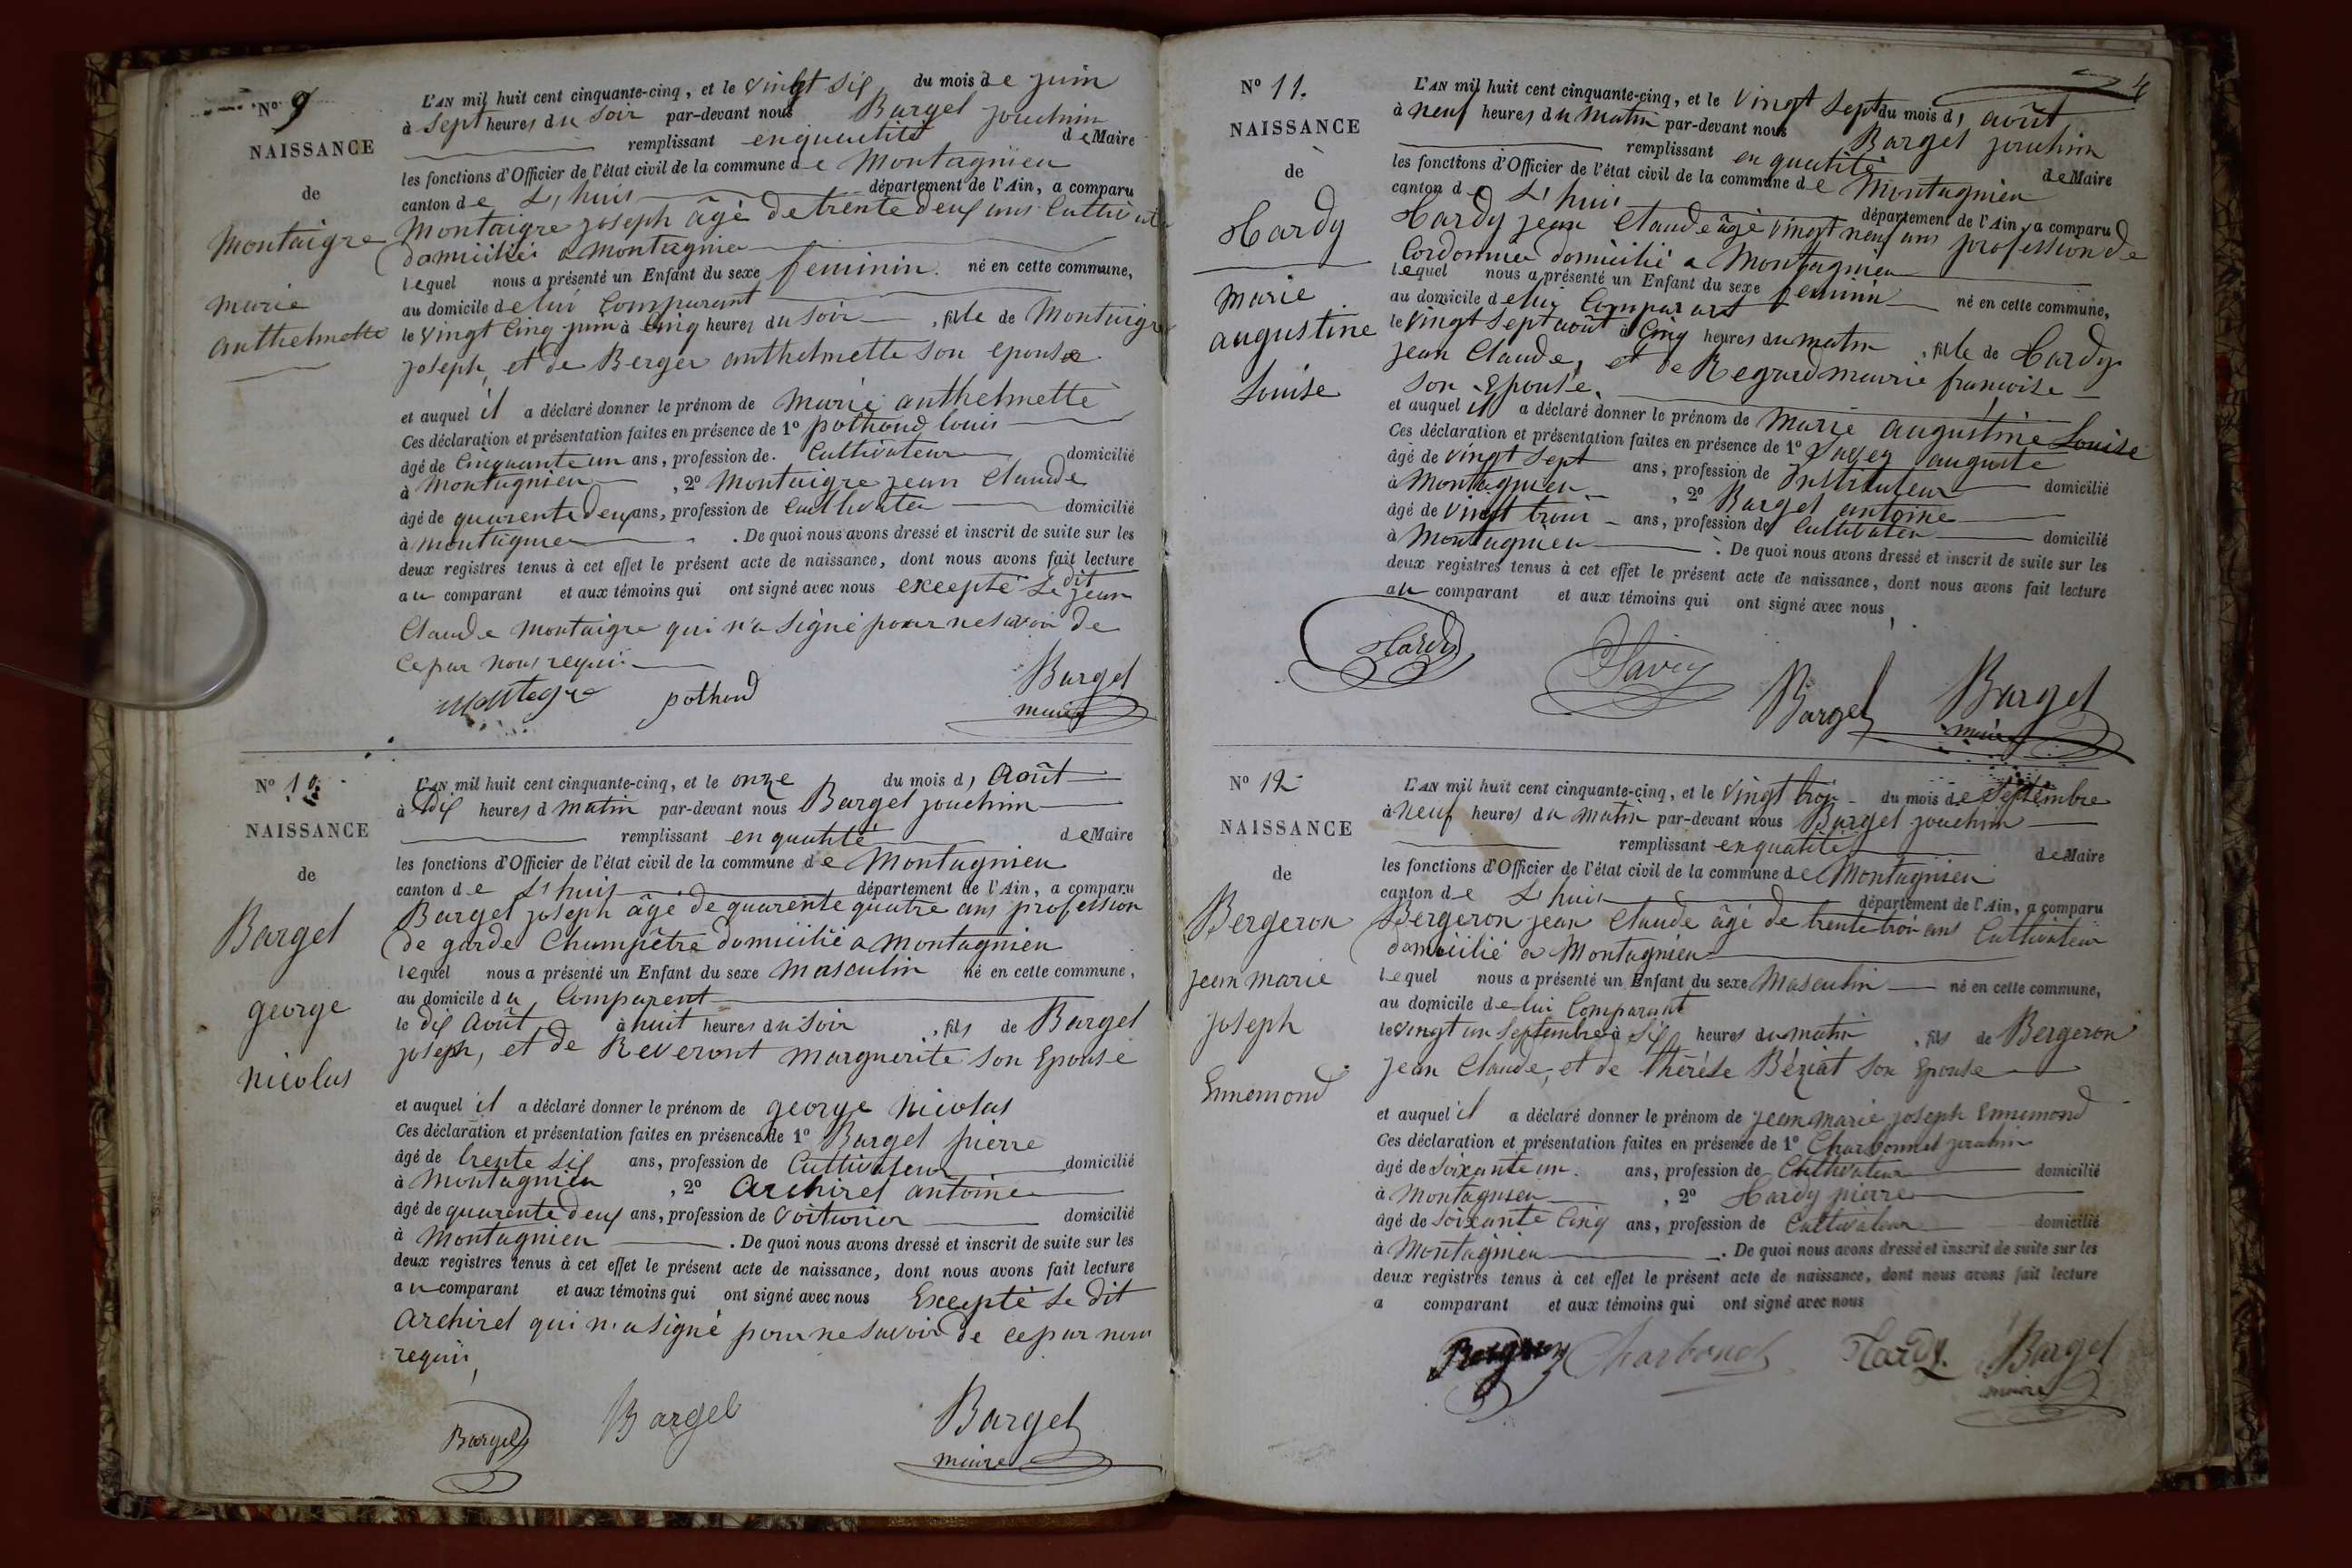 N° 9
NAISSANCE
de
Montaigre
marie
anthelmette
L'AN mil huit cent cinquante-cinq, et le vingt six du mois de juin
à sept heures du soir par-devant nous Bargel jouchim
remplissant enquatité de Maire
les fonctions d'Officier de l'état civil de la commune de Montagnieu
canton de L'huis département de l'Ain, a comparu
Montaigre joseph âgé de trente deux ans Cultivate
domicilié a montagnieu
lequel nous a présenté un Enfant du sexe feminin né en cette commune,
au domicile de lui Comparant
le vingt Cinq juin à Cinq heures du soir, fille de Montaigre
joseph, et de Berger anthelmette son epouse
et auquel il a déclaré donner le prénom de Marie anthelmette
Ces déclaration et présentation faites en présence de 1° pothoud louis
âgé de Cinquante un ans, profession de Cultivateur domicilié
à Montagnieu, 2° Montaigre jean Claude
âgé de quarente deux ans, profession de Cultivateu domicilié
à montagnieu. De quoi nous avons dressé et inscrit de suite sur les
deux registres tenus à cet effet le présent acte de naissance, dont nous avons fait lecture
au comparant et aux témoins qui ont signé avec nous excepté Le dit jean
Claude Montaigre qui n'a signé pour ne savoir de
Ce par nous requi
Montegre pothoud Bargel
maire
N° 10
NAISSANCE
de
Bargel
george
nicolas
L'AN mil huit cent cinquante-cinq, et le onze du mois d, Août
à Dix heures d matin par-devant nous Bargel jouchim
remplissant en quatité de Maire
les fonctions d'Officier de l'état civil de la commune de Montagnieu
canton de L'huis département de l'Ain, a comparu
Bargel joseph âgé de quarente quatre ans profession
de garde Champêtre domicilié a Montagnieu
lequel nous a présenté un Enfant du sexe Masculin né en cette commune,
au domicile du Comparent
le dix Août à huit heures du soir, fils de Bargel
joseph, et de Reveront Marguerite son Epouse
et auquel il a déclaré donner le prénom de george Nicolas
Ces déclaration et présentation faites en présence de 1° Bargel pierre
âgé de trente six ans, profession de Cultivateur domicilié
à Montagnieu, 2° Archirel antoine
âgé de quarente deux ans, profession de Voiturier domicilié
à Montagnieu. De quoi nous avons dressé et inscrit de suite sur les
deux registres tenus à cet effet le présent acte de naissance, dont nous avons fait lecture
au comparant et aux témoins qui ont signé avec nous Excepté Le dit
Archirel qui n'a signé pour ne savoir de ce par nous
requi
Bargel Bargel Bargel
maire
4
N° 11.
NAISSANCE
de
Hardy
Marie
augustine
Louise
L'AN mil huit cent cinquante-cinq, et le vingt sept du mois d, août
à neuf heures du matin par-devant nous Bargel jouchim
remplissant en quatité de Maire
les fonctions d'Officier de l'état civil de la commune de Montagnieu
canton de L'huis département de l'Ain, a comparu
Hardy jean Claude âgé vingt neuf ans profession de
Cordonnier domicilié a Montagnieu
lequel nous a présenté un Enfant du sexe feminin né en cette commune,
au domicile de lui Comparant
le vingt sept août à Cinq heures du matin, fille de Hardy
jean Claude, et de Regard mavrie françoise
son Epouse
et auquel il a déclaré donner le prénom de Marie augustine Louise
Ces déclaration et présentation faites en présence de 1° Savey auguste
âgé de vingt sept ans, profession de Instituteur domicilié
à Montagnieu, 2° Bargel antoine
âgé de vingt trois ans, profession de Cultivateu domicilié
à Montagnieu. De quoi nous avons dressé et inscrit de suite sur les
deux registres tenus à cet effet le présent acte de naissance, dont nous avons fait lecture
au comparant et aux témoins qui ont signé avec nous,
Hardy Savey Bargel Bargel
maire
N° 12
NAISSANCE
de
Bergeron
jean marie
joseph
Ennemond
L'AN mil huit cent cinquante-cinq, et le vingt trois du mois de Septembre
à neuf heures du matin par-devant nous Bargel jouchim
remplissant en quatité de Maire
les fonctions d'Officier de l'état civil de la commune de Montagnieu
canton de L'huis département de l'Ain, a comparu
Bergeron jean Claude âgé de trente trois ans Cultivateur
domicilié a Montagnieu
lequel nous a présenté un Enfant du sexe Masculin né en cette commune,
au domicile de lui Comparant
le vingt un Septembre à six heures du matin, fils de Bergeron
jean Claude, et de thérèse Béziat son Epouse
et auquel il a déclaré donner le prénom de jean marie joseph Ennemond
Ces déclaration et présentation faites en présence de 1° Charbonnet
âgé de soixante un ans, profession de Cultivateur domicilié
à Montagnieu, 2° Hardy pierre
âgé de soixante Cinq ans, profession de Cultivateur domicilié
à Montagnieu. De quoi nous avons dressé et inscrit de suite sur les
deux registres tenus à cet effet le présent acte de naissance, dont nous avons fait lecture
a comparant et aux témoins qui ont signé avec nous
Bergeron Charbonet Hardy. Bargel
maire